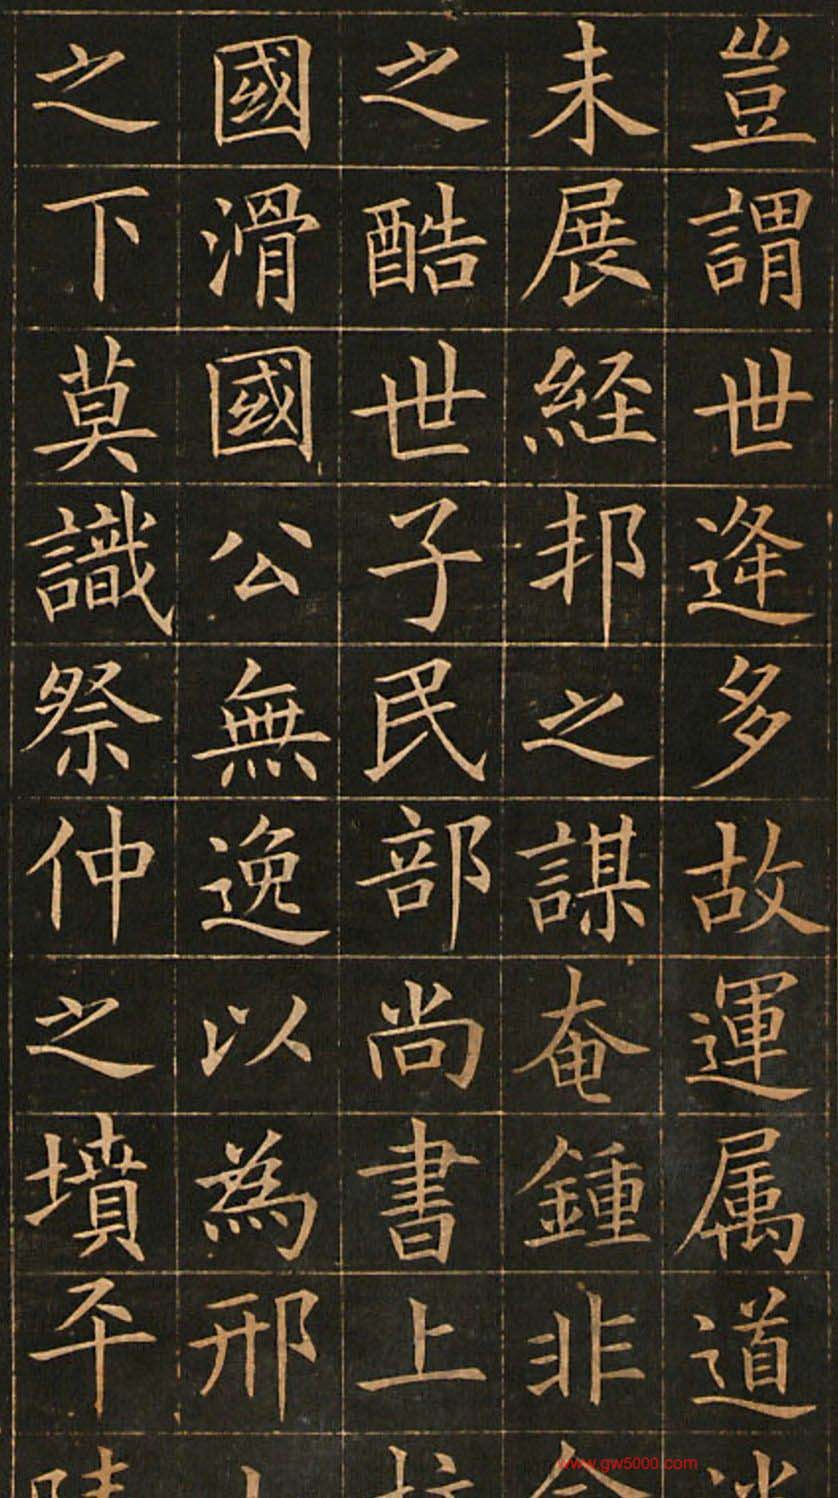 豈謂世逄多故運属道
未展経邦之謀奄鍾非
之酷世子民部尚書上
國滑國公無逸以為邢
之下莫識祭仲之墳平
www.gw5000.com